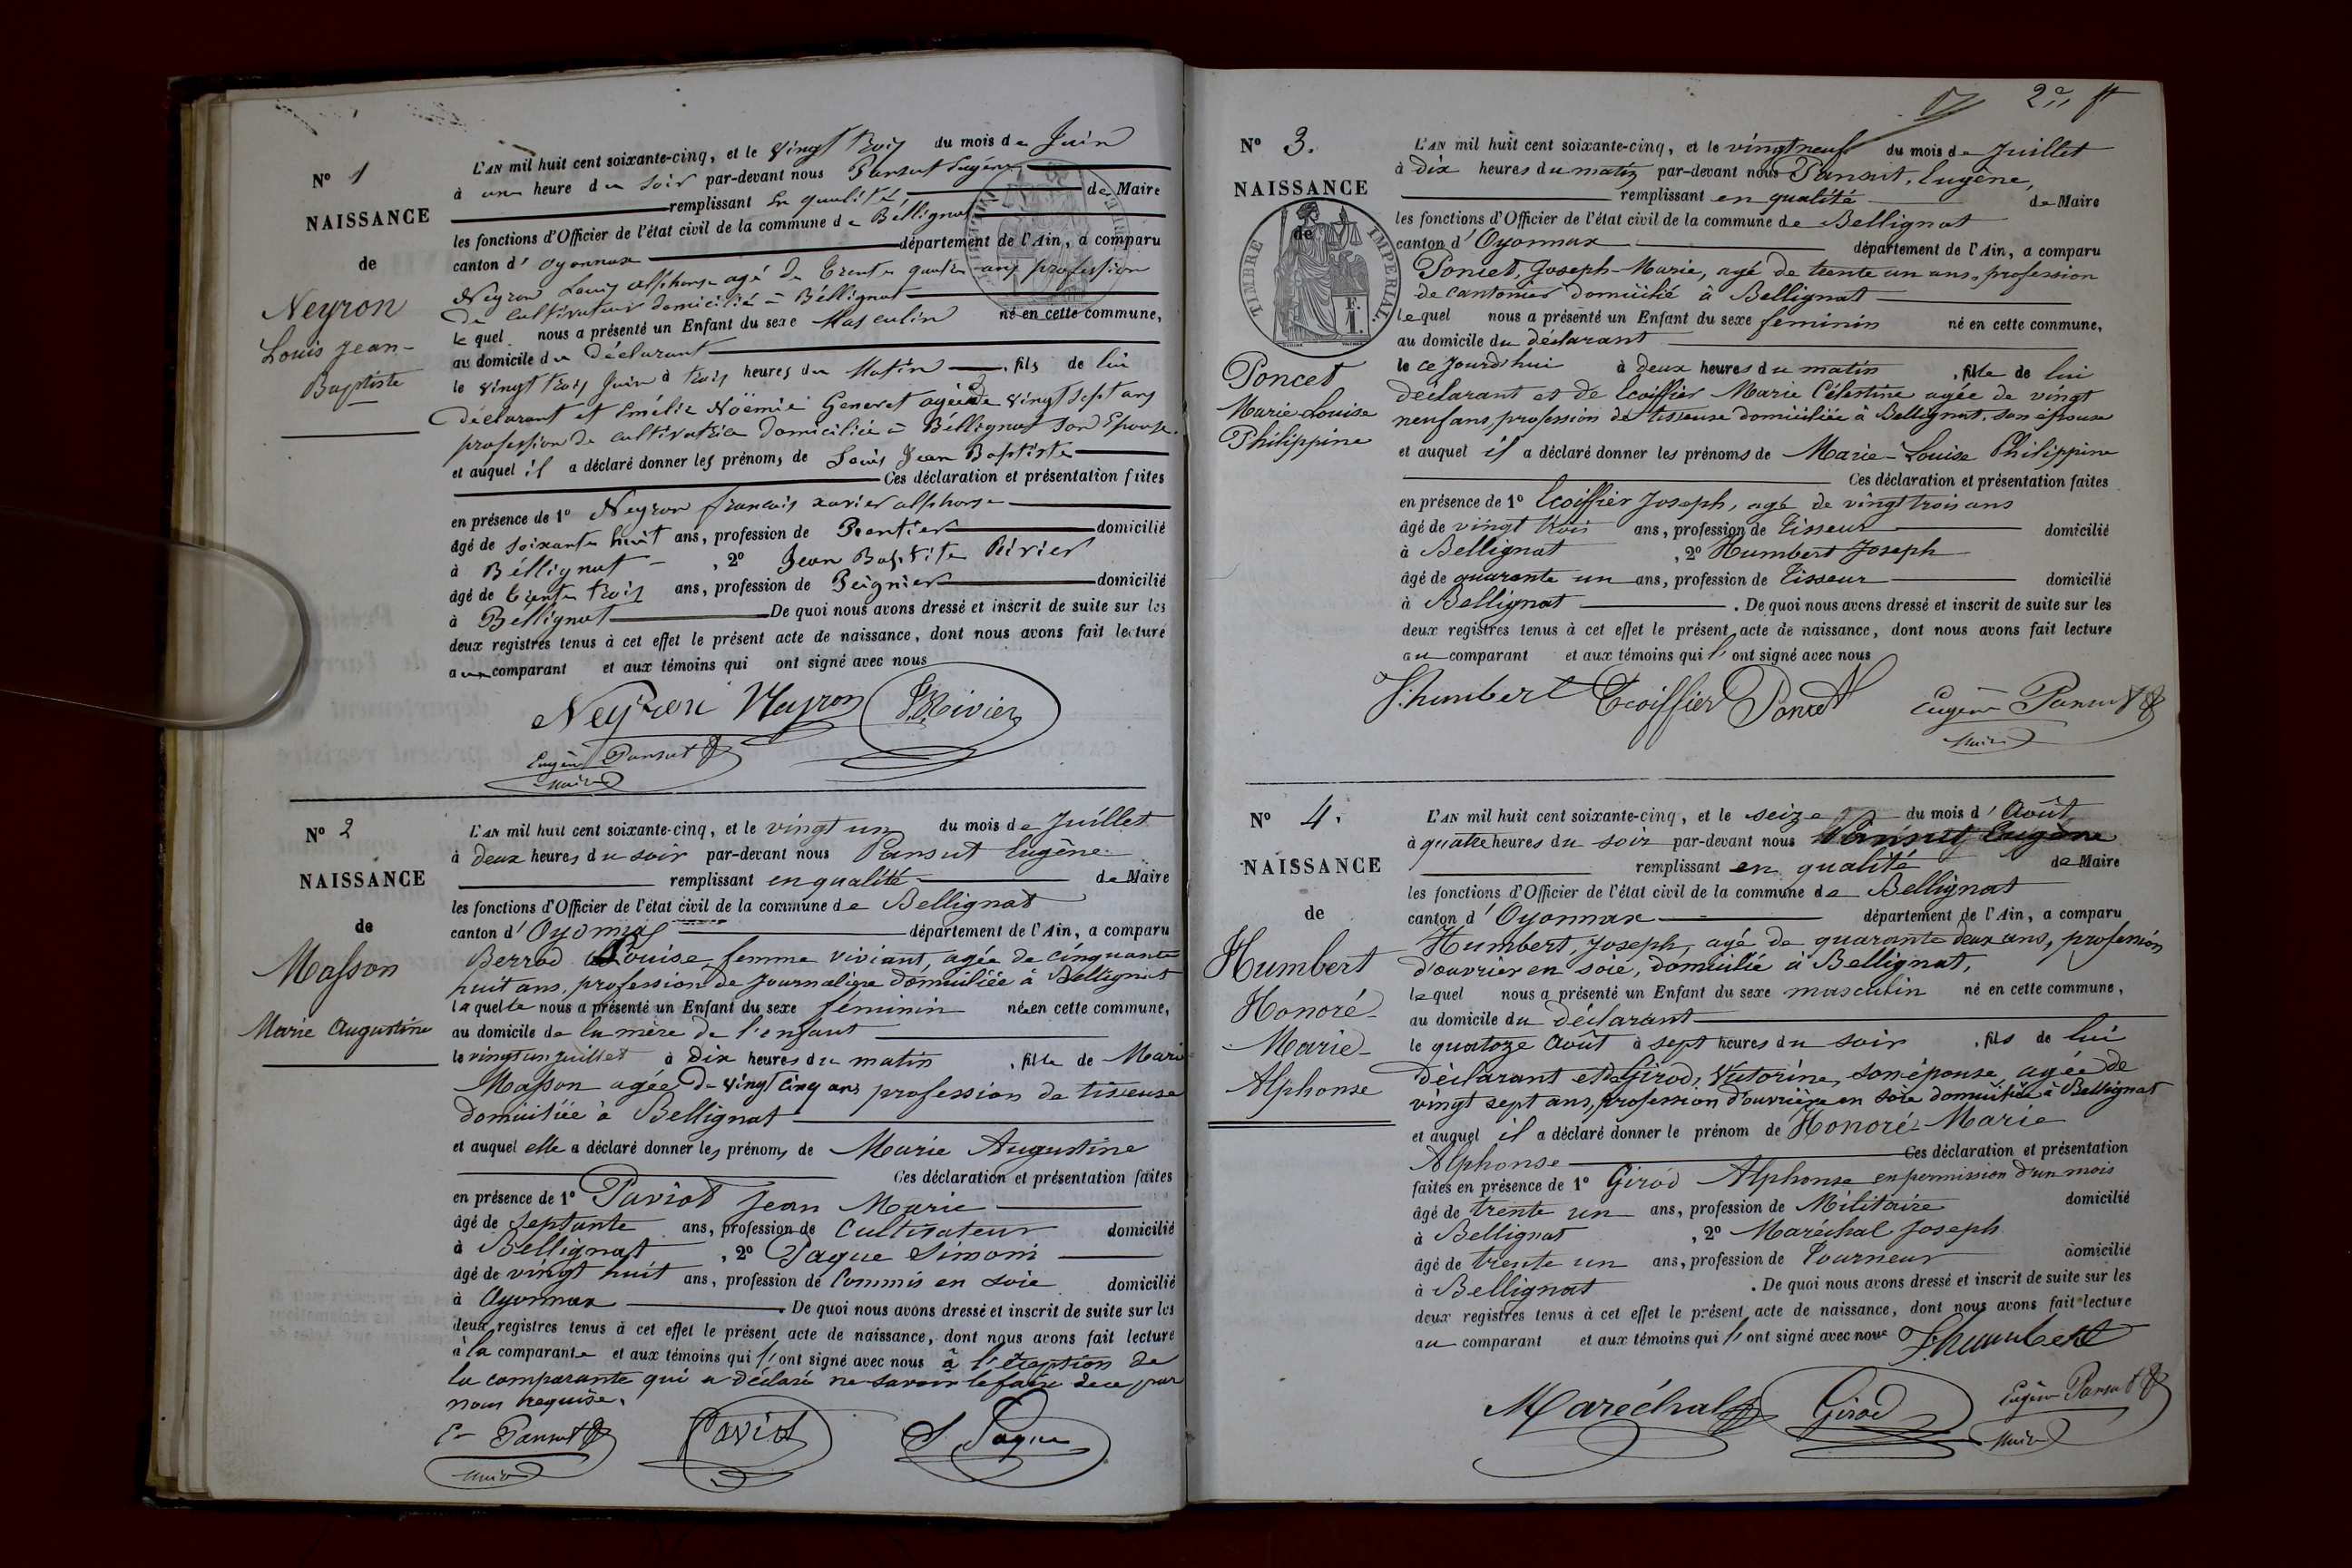 N° 1
NAISSANCE
de
Neyron
Louis Jean-
Baptiste
L'AN mil huit cent soixante-cinq, et le vingt trois du mois de Juin
à une heure du soir par-devant nous Pansut Eugène
remplissant en qualité de Maire
les fonctions d'Officier de l'état civil de la commune de Béllignat
canton d'Oyonnax département de l'Ain, a comparu
Neyron Louis alphonse agé de trente quatre ans profession
de cultivateur domicilié à Béllignat
lequel nous a présenté un Enfant du sexe Masculin né en cette commune,
au domicile du Déclarant
le vingt trois Juin à trois heures du Matin, fils de lui
déclarant et Emélie Nöémie Generet agée de vingt sept ans
profession de cultivatrice domiciliée à Béllignat son Epouse.
et auquel il a déclaré donner les prénoms de Louis Jean Baptiste
Ces déclaration et présentation faites
en présence de 1° Neyron francois xavier alphonse
âgé de soixante huit ans, profession de Rentier domicilié
à Béllignat, 2° Jean Baptiste Rivier
âgé de trente trois ans, profession de Peignier domicilié
à Béllignat De quoi nous avons dressé et inscrit de suite sur les
deux registres tenus à cet effet le présent acte de naissance, dont nous avons fait lecture
aux comparant et aux témoins qui ont signé avec nous
Neyron Neyron J.B Rivier
Eugène Pansut
Maire
N° 2
NAISSANCE
de
Masson
Marie Augustine
L'AN mil huit cent soixante-cinq, et le vingt un du mois de Juillet
à deux heures du soir par-devant nous Pansut Eugène
remplissant en qualité de Maire
les fonctions d'Officier de l'état civil de la commune de Bellignat
canton d'Oyonnax département de l'Ain, a comparu
Berrod Louise femme viviant, agée de cinquante
huit ans, profession de Journalière domiciliée à Bellignat
laquelle nous a présenté un Enfant du sexe féminin née en cette commune,
au domicile de la mère de l'enfant
le vingt un juillet à Dix heures du matin, fille de Marie
Masson agée de vingt cinq ans profession de tisseuse
domiciliée à Bellignat
et auquel elle a déclaré donner les prénoms de Marie Augustine
Ces déclaration et présentation faites
en présence de 1° Paviot Jean Marie
âgé de Septante ans, profession de Cultivateur domicilié
à Bellignat, 2° Pague Simon
âgé de vingt huit ans, profession de Commis en soie domicilié
à Oyonnax. De quoi nous avons dressé et inscrit de suite sur les
deux registres tenus à cet effet le présent acte de naissance, dont nous avons fait lecture
à la comparante et aux témoins qui l'ont signé avec nous à l'éxeption de
la comparante qui a déclaré ne savoir le faire de ce par
nous requise.
E. Pansut Paviot S Pague
Maire
2e f
N° 3.
NAISSANCE
de
TIMBRE IMPERIAL.
F.
1.
Poncet
Marie Louise
Philippine
L'AN mil huit cent soixante-cinq, et le vingt neuf du mois de Juillet
à Dix heures du matin par-devant nous Pansut, Eugène,
remplissant en qualité de Maire
les fonctions d'Officier de l'état civil de la commune de Bellignat
canton d'Oyonnax département de l'Ain, a comparu
Poncet, Joseph-Marie, agé de trente un ans, profession
de Cantonier domicilié à Bellignat
lequel nous a présenté un Enfant du sexe féminin né en cette commune,
au domicile du déclarant
le ce Jourd'hui à deux heures du matin, fille de lui
déclarant et de Ecoiffier Marie Célestine agée de vingt
neuf ans, profession de tisseuse domiciliée à Bellignat, son épouse
et auquel il a déclaré donner les prénoms de Marie-Louise Philippine
Ces déclaration et présentation faites
en présence de 1° Ecoiffier Joseph, agé de vingt trois ans
âgé de vingt trois ans, profession de Tisseur domicilié
à Bellignat, 2° Humbert Joseph
âgé de quarante un ans, profession de Tisseur domicilié
à Bellignat. De quoi nous avons dressé et inscrit de suite sur les
deux registres tenus à cet effet le présent acte de naissance, dont nous avons fait lecture
au comparant et aux témoins qui l'ont signé avec nous
J. humbert Ecoiffier Poncet Eugène Pansut
Maire
N° 4.
NAISSANCE
de
Humbert
Honoré-
Marie-
Alphonse
L'AN mil huit cent soixante-cinq, et le seize du mois d'Août
à quatre heures du soir par-devant nous Pansut Eugène
remplissant en qualité de Maire
les fonctions d'Officier de l'état civil de la commune de Bellignat
canton d'Oyonnax département de l'Ain, a comparu
Humbert, Joseph, agé de quarante deux ans, profession
d'ouvrier en soie, domicilié à Bellignat,
lequel nous a présenté un Enfant du sexe masculin né en cette commune,
au domicile du Déclarant
le quatoze Août à sept heures du soir, fils de lui
Déclarant et de Girod, Victorine, son épouse agée de
vingt sept ans, profession d'ouvrière en soie domiciliée à Bellignat
et auquel il a déclaré donner le prénom de Honoré-Marie
Alphonse Ces déclaration et présentation
faites en présence de 1° Girod Alphonse en permission d'un mois
âgé de trente un ans, profession de Militaire domicilié
à Bellignat, 2° Maréchal Joseph
âgé de trente un ans, profession de Tourneur domicilié
à Bellignat. De quoi nous avons dressé et inscrit de suite sur les
deux registres tenus à cet effet le présent acte de naissance, dont nous avons fait lecture
au comparant et aux témoins qui l'ont signé avec nous J. humbert
Maréchal Girod Eugène Pansut
Maire